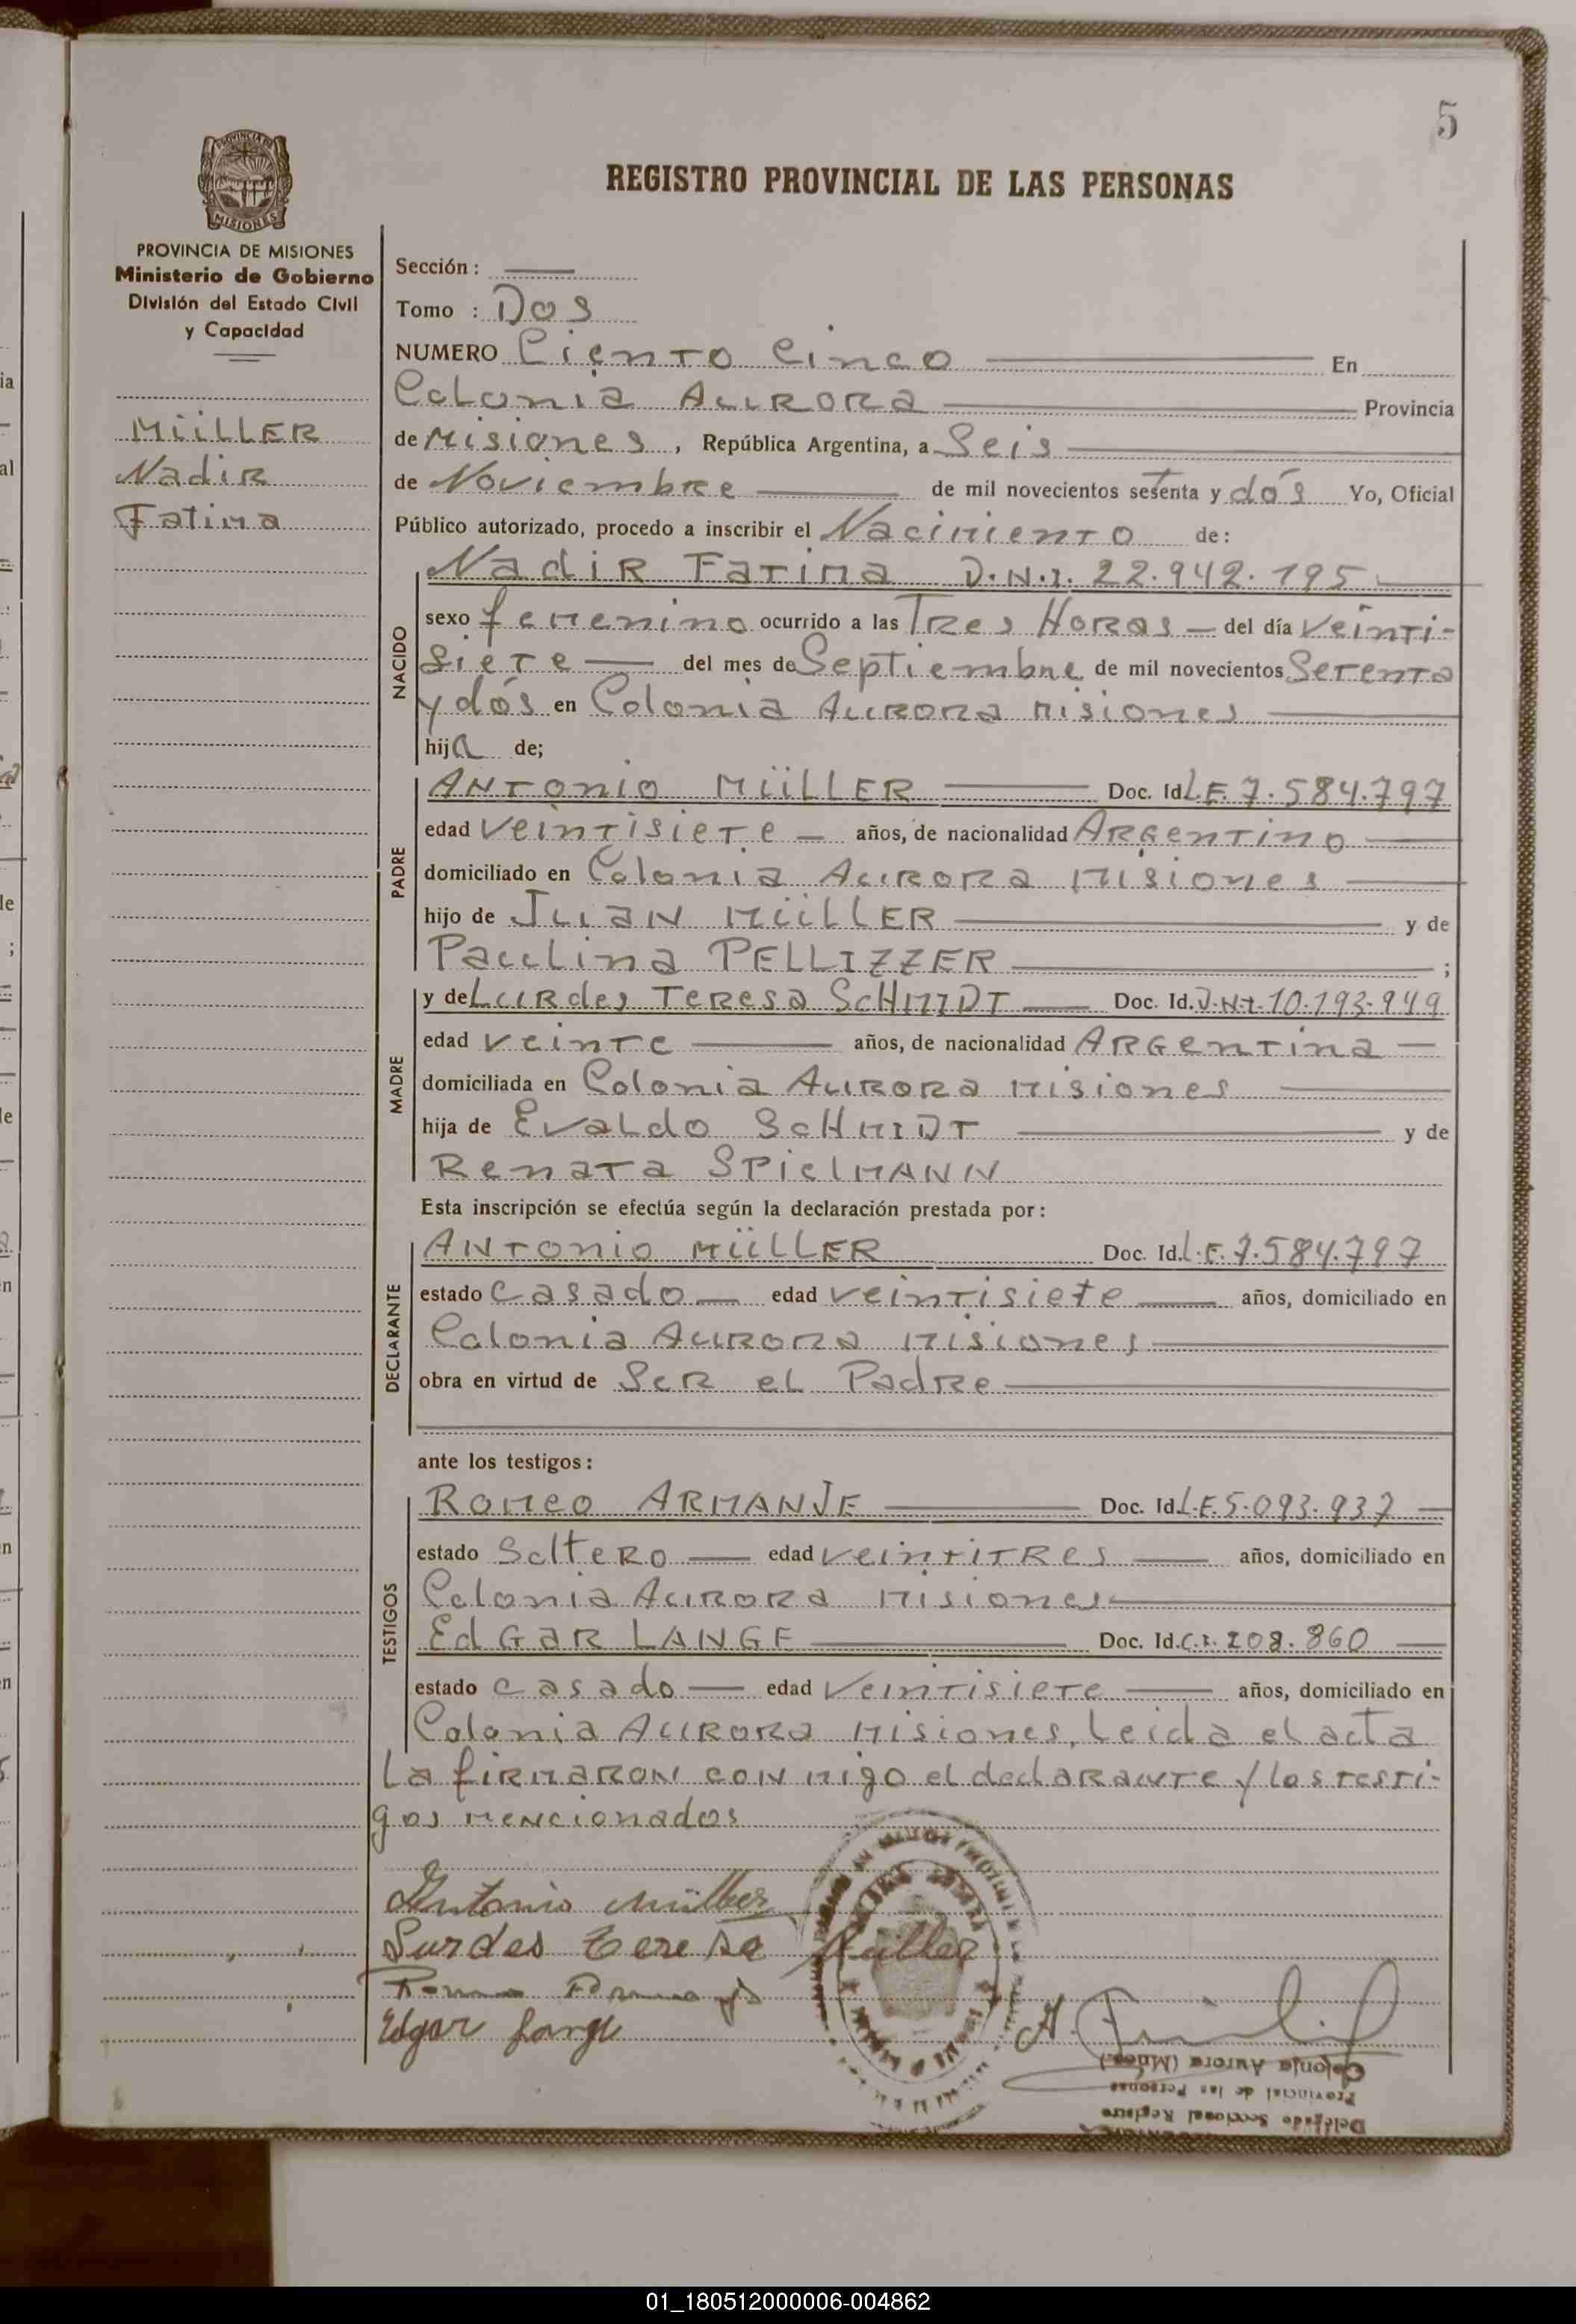 5
REGISTRO PROVINCIAL DE LAS PERSONAS
PROVINCIA DE MISIONES
Ministerio de Gobierno
División del Estado Civil
y Capacidad
MüLLER
Nadir
Fatima
Sección :
Tomo : Dos
NUMERO Ciento Cinco En
Colonia Aurora Provincia
de Misiones , República Argentina, a Seis
de Noviembre de mil novecientos setenta y dós Yo, Oficial
Público autorizado, procedo a inscribir el Nacimiento de:
NACIDO
Nadir Fatima D.N.I. 22.942.195
sexo femenino ocurrido a las Tres Horas del día veinti-
siete del mes de Septiembre de mil novecientos Setenta
y dós en Colonia Aurora Misiones
hija de;
PADRE
Antonio MüLLER Doc. Id. L.E. 7.584.797
edad veintisiete años, de nacionalidad Argentino
domiciliado en Colonia Aurora Misiones
hijo de Juan MüLLER y de
Paulina PELLIZZER ;
MADRE
y de Lurdes Teresa SCHMIDT Doc. Id. D.N.I. 10.193.949
edad veinte años, de nacionalidad Argentina
domiciliada en Colonia Aurora Misiones
hija de Evaldo SCHMIDT y de
Renata SPielMANN
Esta inscripción se efectúa según la declaración prestada por:
DECLARANTE
Antonio MüLLER Doc. Id. L.E. 7.584.797
estado casado edad veintisiete años, domiciliado en
Colonia Aurora Misiones
obra en virtud de Ser el Padre
ante los testigos:
TESTIGOS
Romeo ARMANJE Doc. Id. L.E. 5.093.937
estado Soltero edad veintitres años, domiciliado en
Colonia Aurora Misiones
Edgar LANGE Doc. Id. C.I. 208.860
estado casado edad veintisiete años, domiciliado en
Colonia Aurora Misiones. Leida el acta
la firmaron con migo el declarante y los testi-
gos mencionados
Antonio Müller
Lurdes Teresa Müller
Edgar Lange
Colonia Aurora (Mnes.)
Provincial de las Personas
Delegado Seccional Registro
01_180512000006-004862